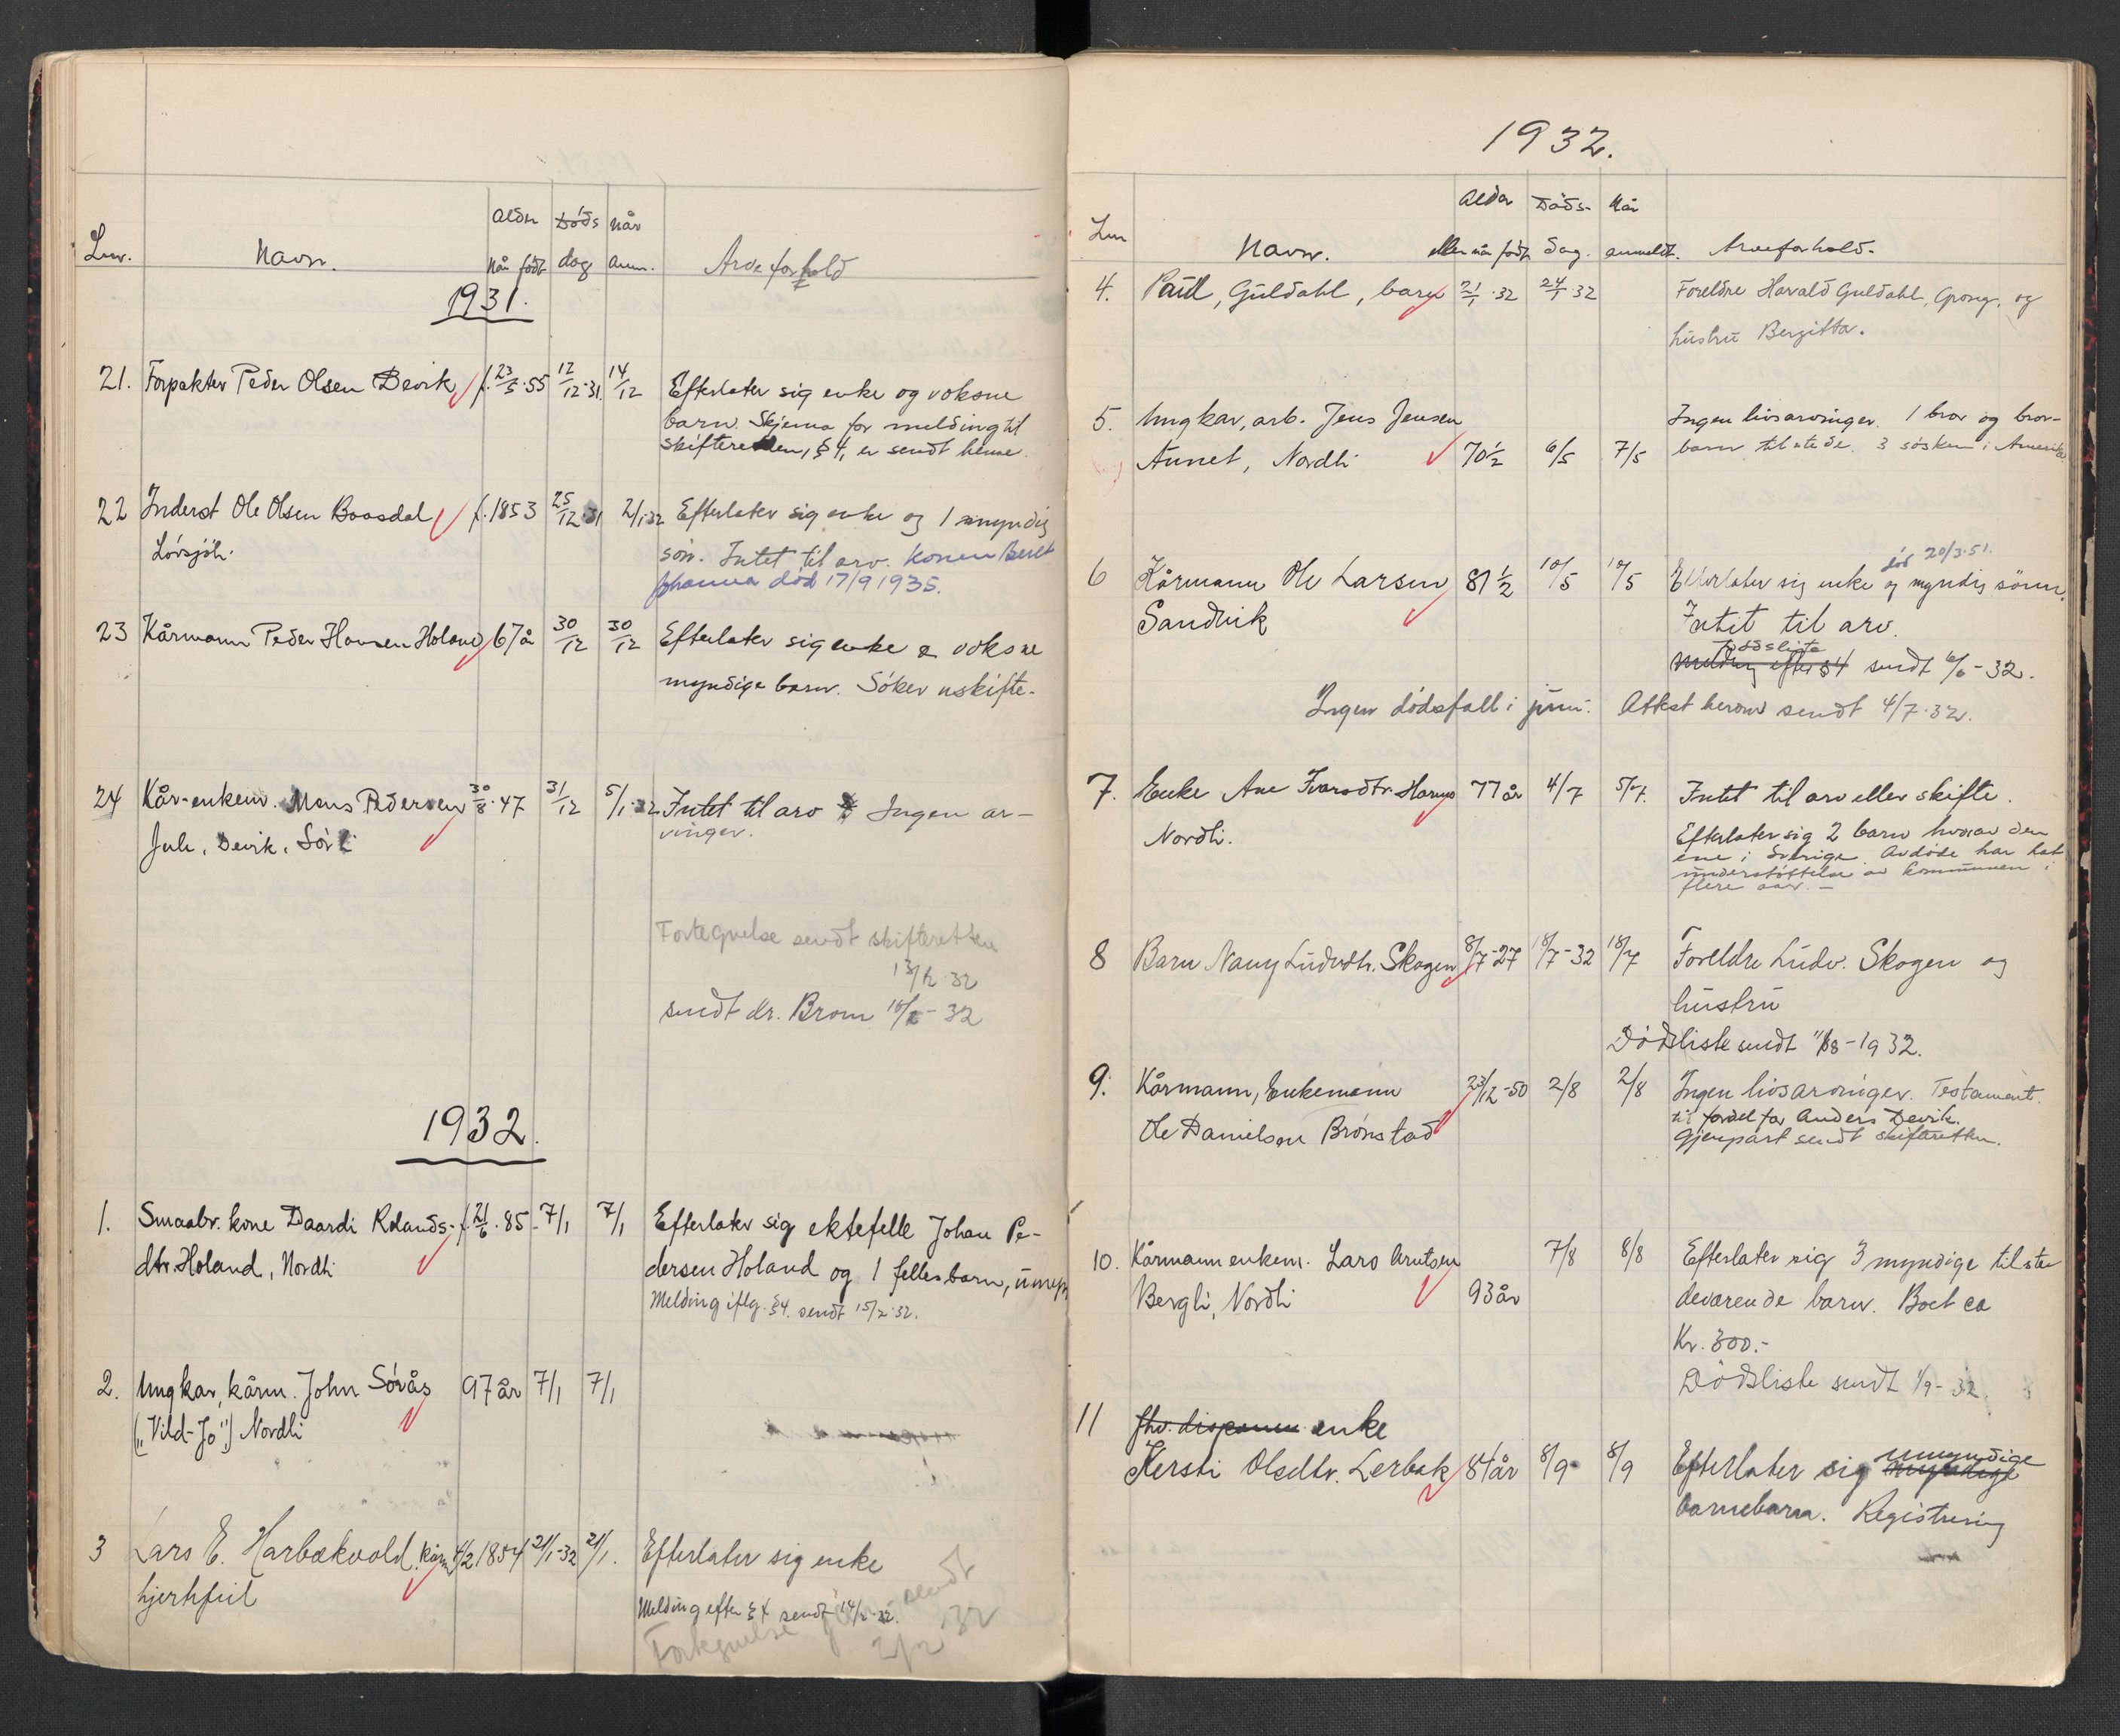 Lnr. Navn. Alder når født Døds dag når anm. Arveforhold
1931.
21. Forpakter Peder Olsen Devik f. 23/5.55 12/12.31. 14/12 Efterlater sig enke og voksne
barn. Skjema for melding til
skifteretten, § 4, er sendt henne.
22 Inderst Ole Olsen Baasdal f. 1853 25/12.31 2/1.32 Efterlater sig enke og 1 myndig
Løvsjøli. søn. Intet til arv. Konen Beret
Johanna død 17/9 1935.
23 Kårmann Peder Hansen Holand 67 år 30/12 30/12 Efterlater sig enke og voksne
myndige barn. Søker uskifte.
24 Kår-enkem. Mons Pedersen 30/8.47 31/12 5/1.32 Intet til arv Ingen ar-
Jule, Devik, Sørli vinger.
Fortegnelse sendt skifteretten
13/12.32
sendt dr. Brom 32
1932.
1. Smaabr. kone Daardi Rolands- f. 21/6.85 7/1 7/1 Efterlater sig ektefelle Johan Pe-
dtr. Holand, Nordli dersen Holand og 1 fellesbarn,
Melding iflg. §4. sendt 15/2.32.
2. Ungkar, kårm. John Sørås 97 år 7/1 7/1
("Vild-Jo") Nordli
3 Lars E. Harbækvold, kårm 4/2 1854 21/1-32 21/1. Efterlater sig enke
hjertefeil
Melding efter § 4 sendt 14/2.32.
Fortegnelse sendt
2/2 32
1932.
Lnr Navn. Alder eller når født Døds- dag. Når anmeldt. Arveforhold.
4. Paul, Guldahl, barn 21/1.32 24/1.32 Foreldre Harald Guldahl, Grong, og
hustru Bergitta.
5. Ungkar, arb. Jens Jensen Ingen livsarvinger. 1 bror og bror-
Aunet, Nordli 70½ 6/5 7/5 barn tilstede. 3 søsken i Amerika
død 20/3.51.
6 Kårmann Ole Larsen 81½ 10/5 10/5 Efterlater sig enke og myndig sønn.
Sandvik Intet til arv.
Dødsliste
Melding efter §4 sendt 6/6-32.
Ingen dødsfall i juni. Attest herom sendt 4/7.32.
7. Enke Ane Ivarsdtr. 77 år 4/7 5/7. Intet til arv eller skifte.
Nordli. Efterlater sig 2 barn hvorav den
ene i Sverige. Avdøde har hat
understøttelse av kommunen i
flere aar.-
8 Barn Nany Ludvdtr. Skogen 8/7-27 18/7-32 18/7 Foreldre Ludv. Skogen og
hustru
Dødsliste sendt 8-1932.
9. Kårmann, Enkemann 23/12-50 2/8 2/8 Ingen livsarvinger. Testament.
Ole Danielsen Brønstad til fordel for Anders Devik.
Gjenpart sendt skifteretten.
10. Kårmann enkem. Lars Arntsen 7/8 8/8 Efterlater sig 3 myndige tilste
Bergli, Nordli 93 år deværende barn. Boet ca
Kr. 300.-
Dødsliste sendt 1/9-32.
11 fhv. enke
Kersti Olsdtr. Lerbak 84 år 8/9 8/9 Efterlater sig umyndige
barnebarn. Registrering